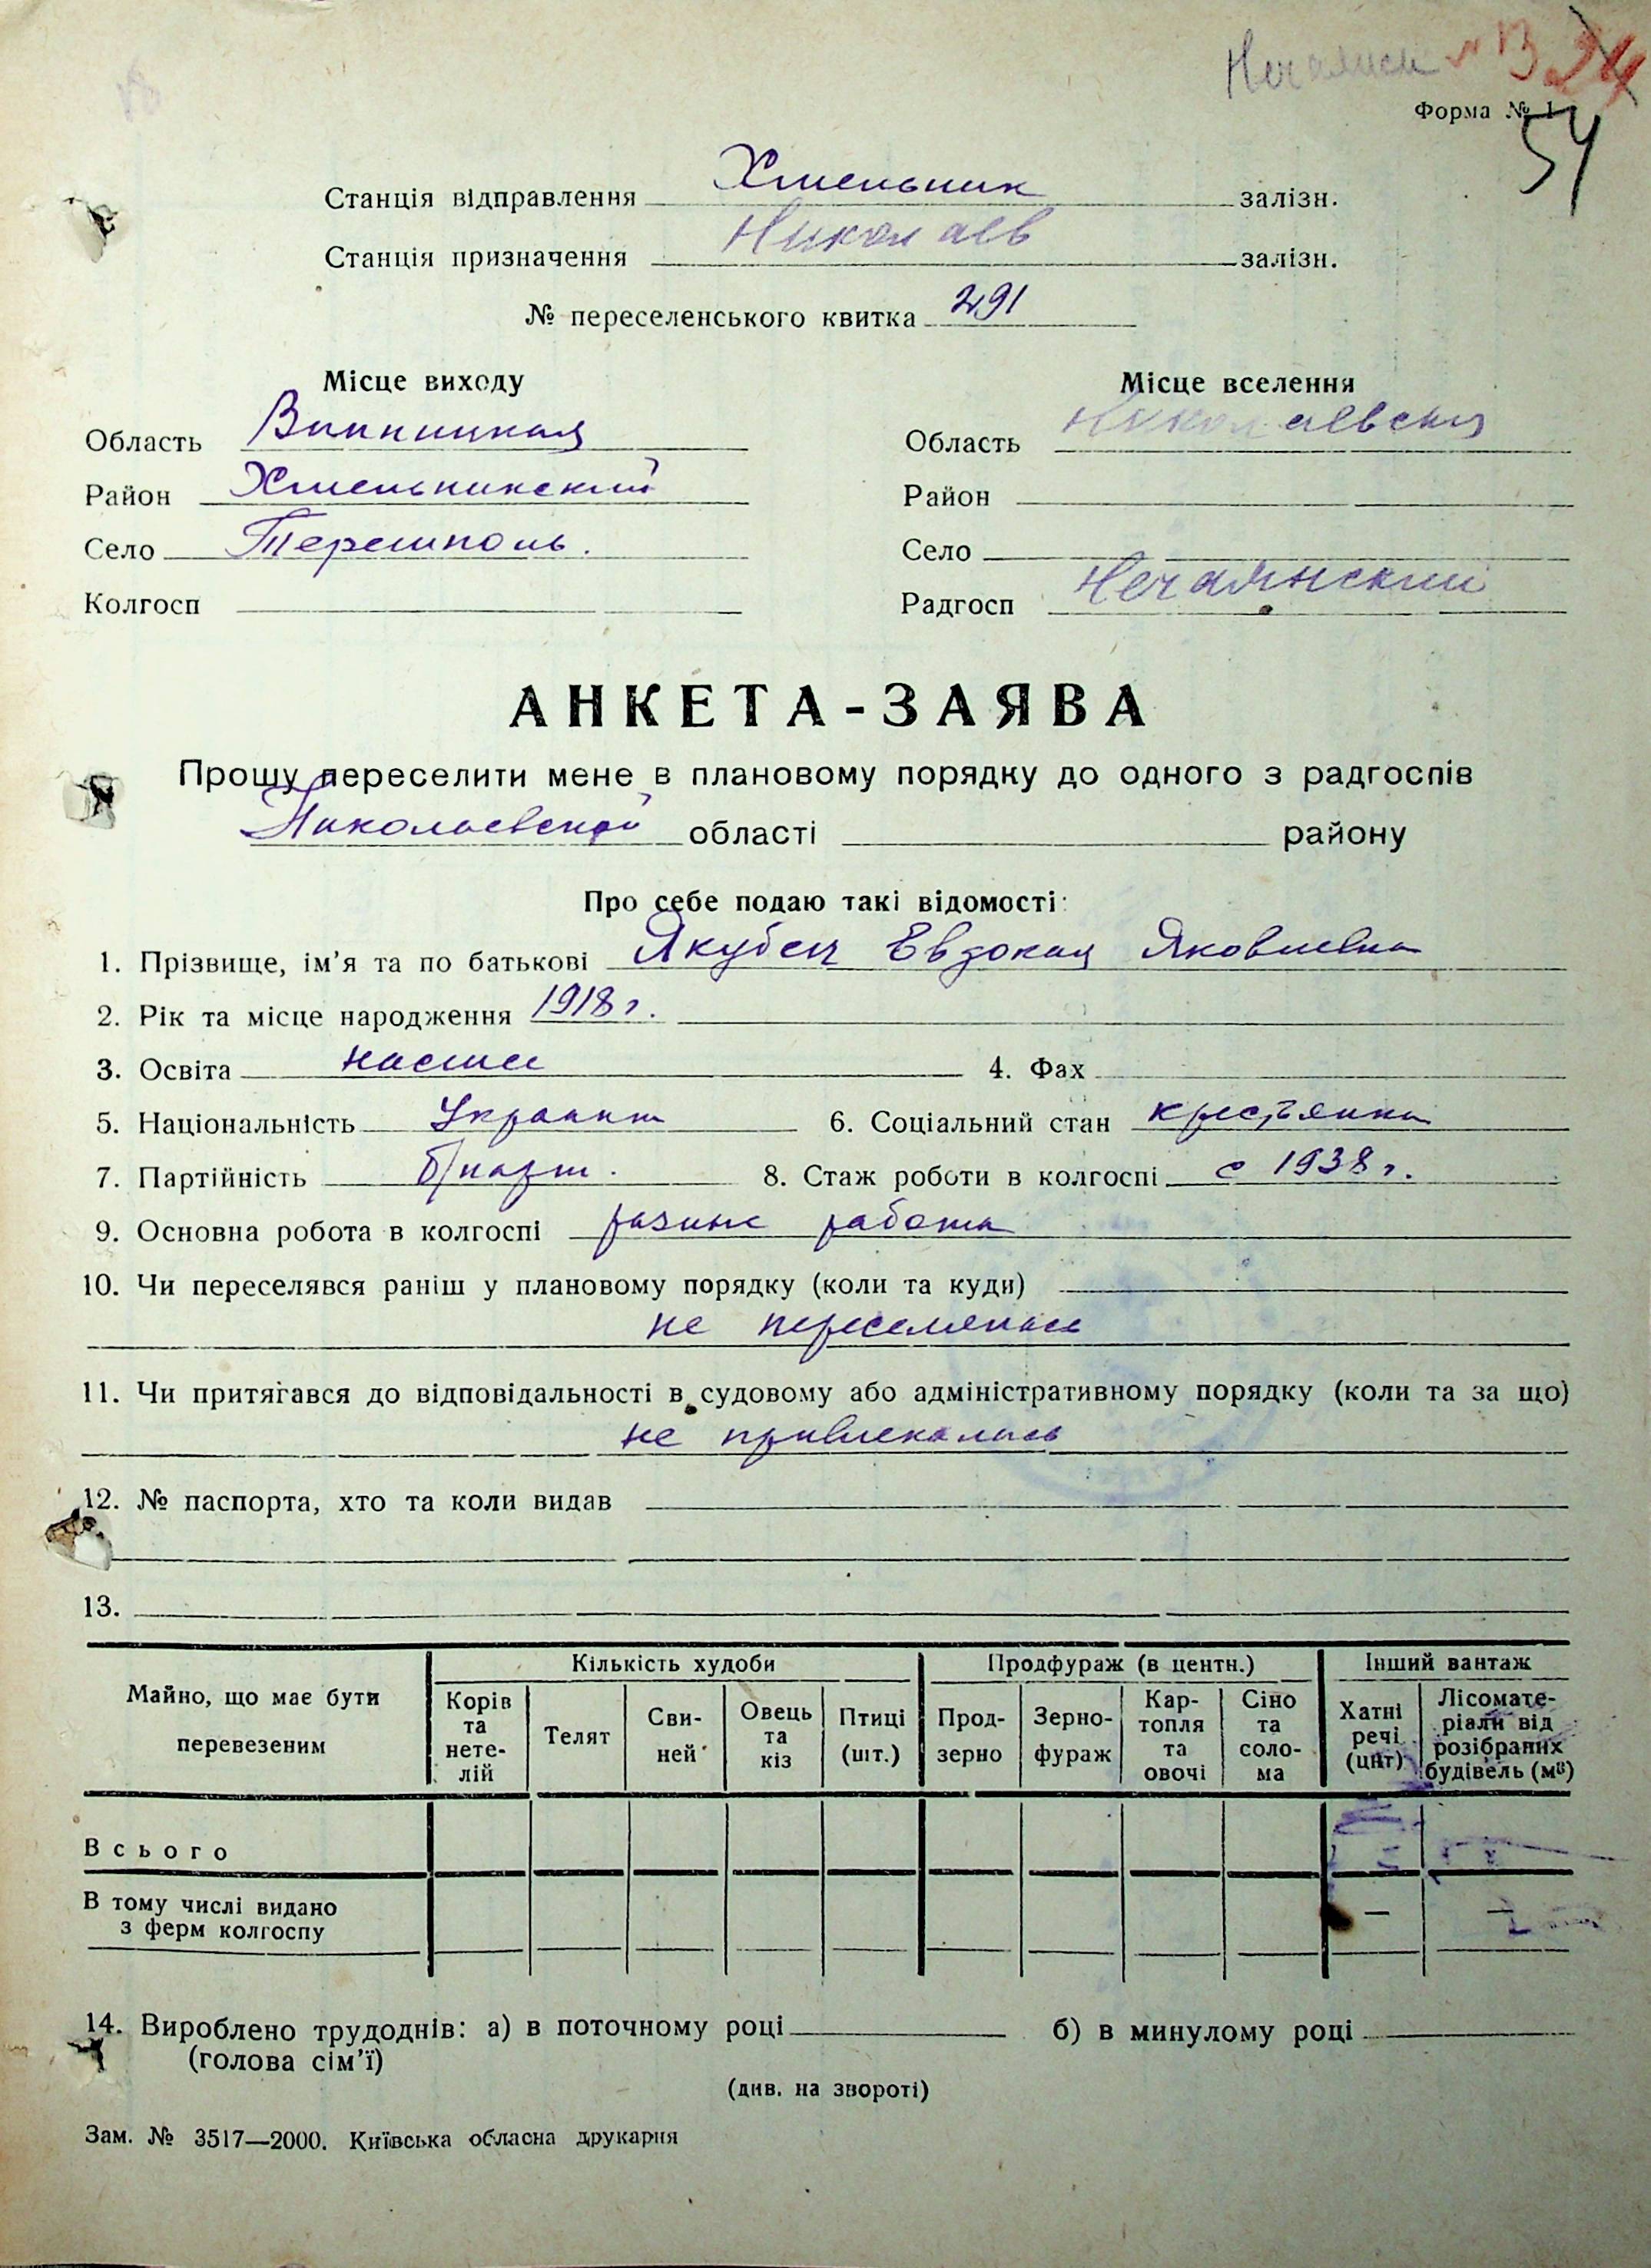 Форма № 1
54
Станція відправлення Хмельник залізн.
Станція призначення Николаев залізн.
№ переселенського квитка 291
Місце виходу Місце вселення
Область Винницкая Область Николаевская
Район Хмельникский Район
Село Терешполь. Село
Колгосп Радгосп Нечаянский
АНКЕТА-ЗАЯВА
Прошу переселити мене в плановому порядку до одного з радгоспів
Николаевской області району
Про себе подаю такі відомості:
1. Прізвище, ім’я та по батькові Якубец Евдокия Яковлевна
2. Рік та місце народження 1918 г.
3. Освіта 4. Фах
5. Національність Украинка 6. Соціальний стан крестьянка
7. Партійність б/парт. 8. Стаж роботи в колгоспі с 1938 г.
9. Основна робота в колгоспі разные работы
10. Чи переселявся раніш у плановому порядку (коли та куди)
не переселялась
11. Чи притягався до відповідальності в судовому або адміністративному порядку (коли та за що)
не привлекалась
12. № паспорта, хто та коли видав
13.
Майно, що має бути перевезеним Кількість худоби Продфураж (в центн.) Інший вантаж
Корів та нете-лій Телят Сви-ней Овець та кіз Птиці (шт.) Прод-зерно Зерно-фураж Кар-топля та овочі Сіно та соло-ма Хатні речі (цнт) Лісомате-ріали від розібраних будівель (м³)
Всього
В тому числі видано
з ферм колгоспу — —
14. Вироблено трудоднів: а) в поточному році б) в минулому році
(голова сім’ї)
(див. на звороті)
Зам. № 3517—2000. Київська обласна друкарня